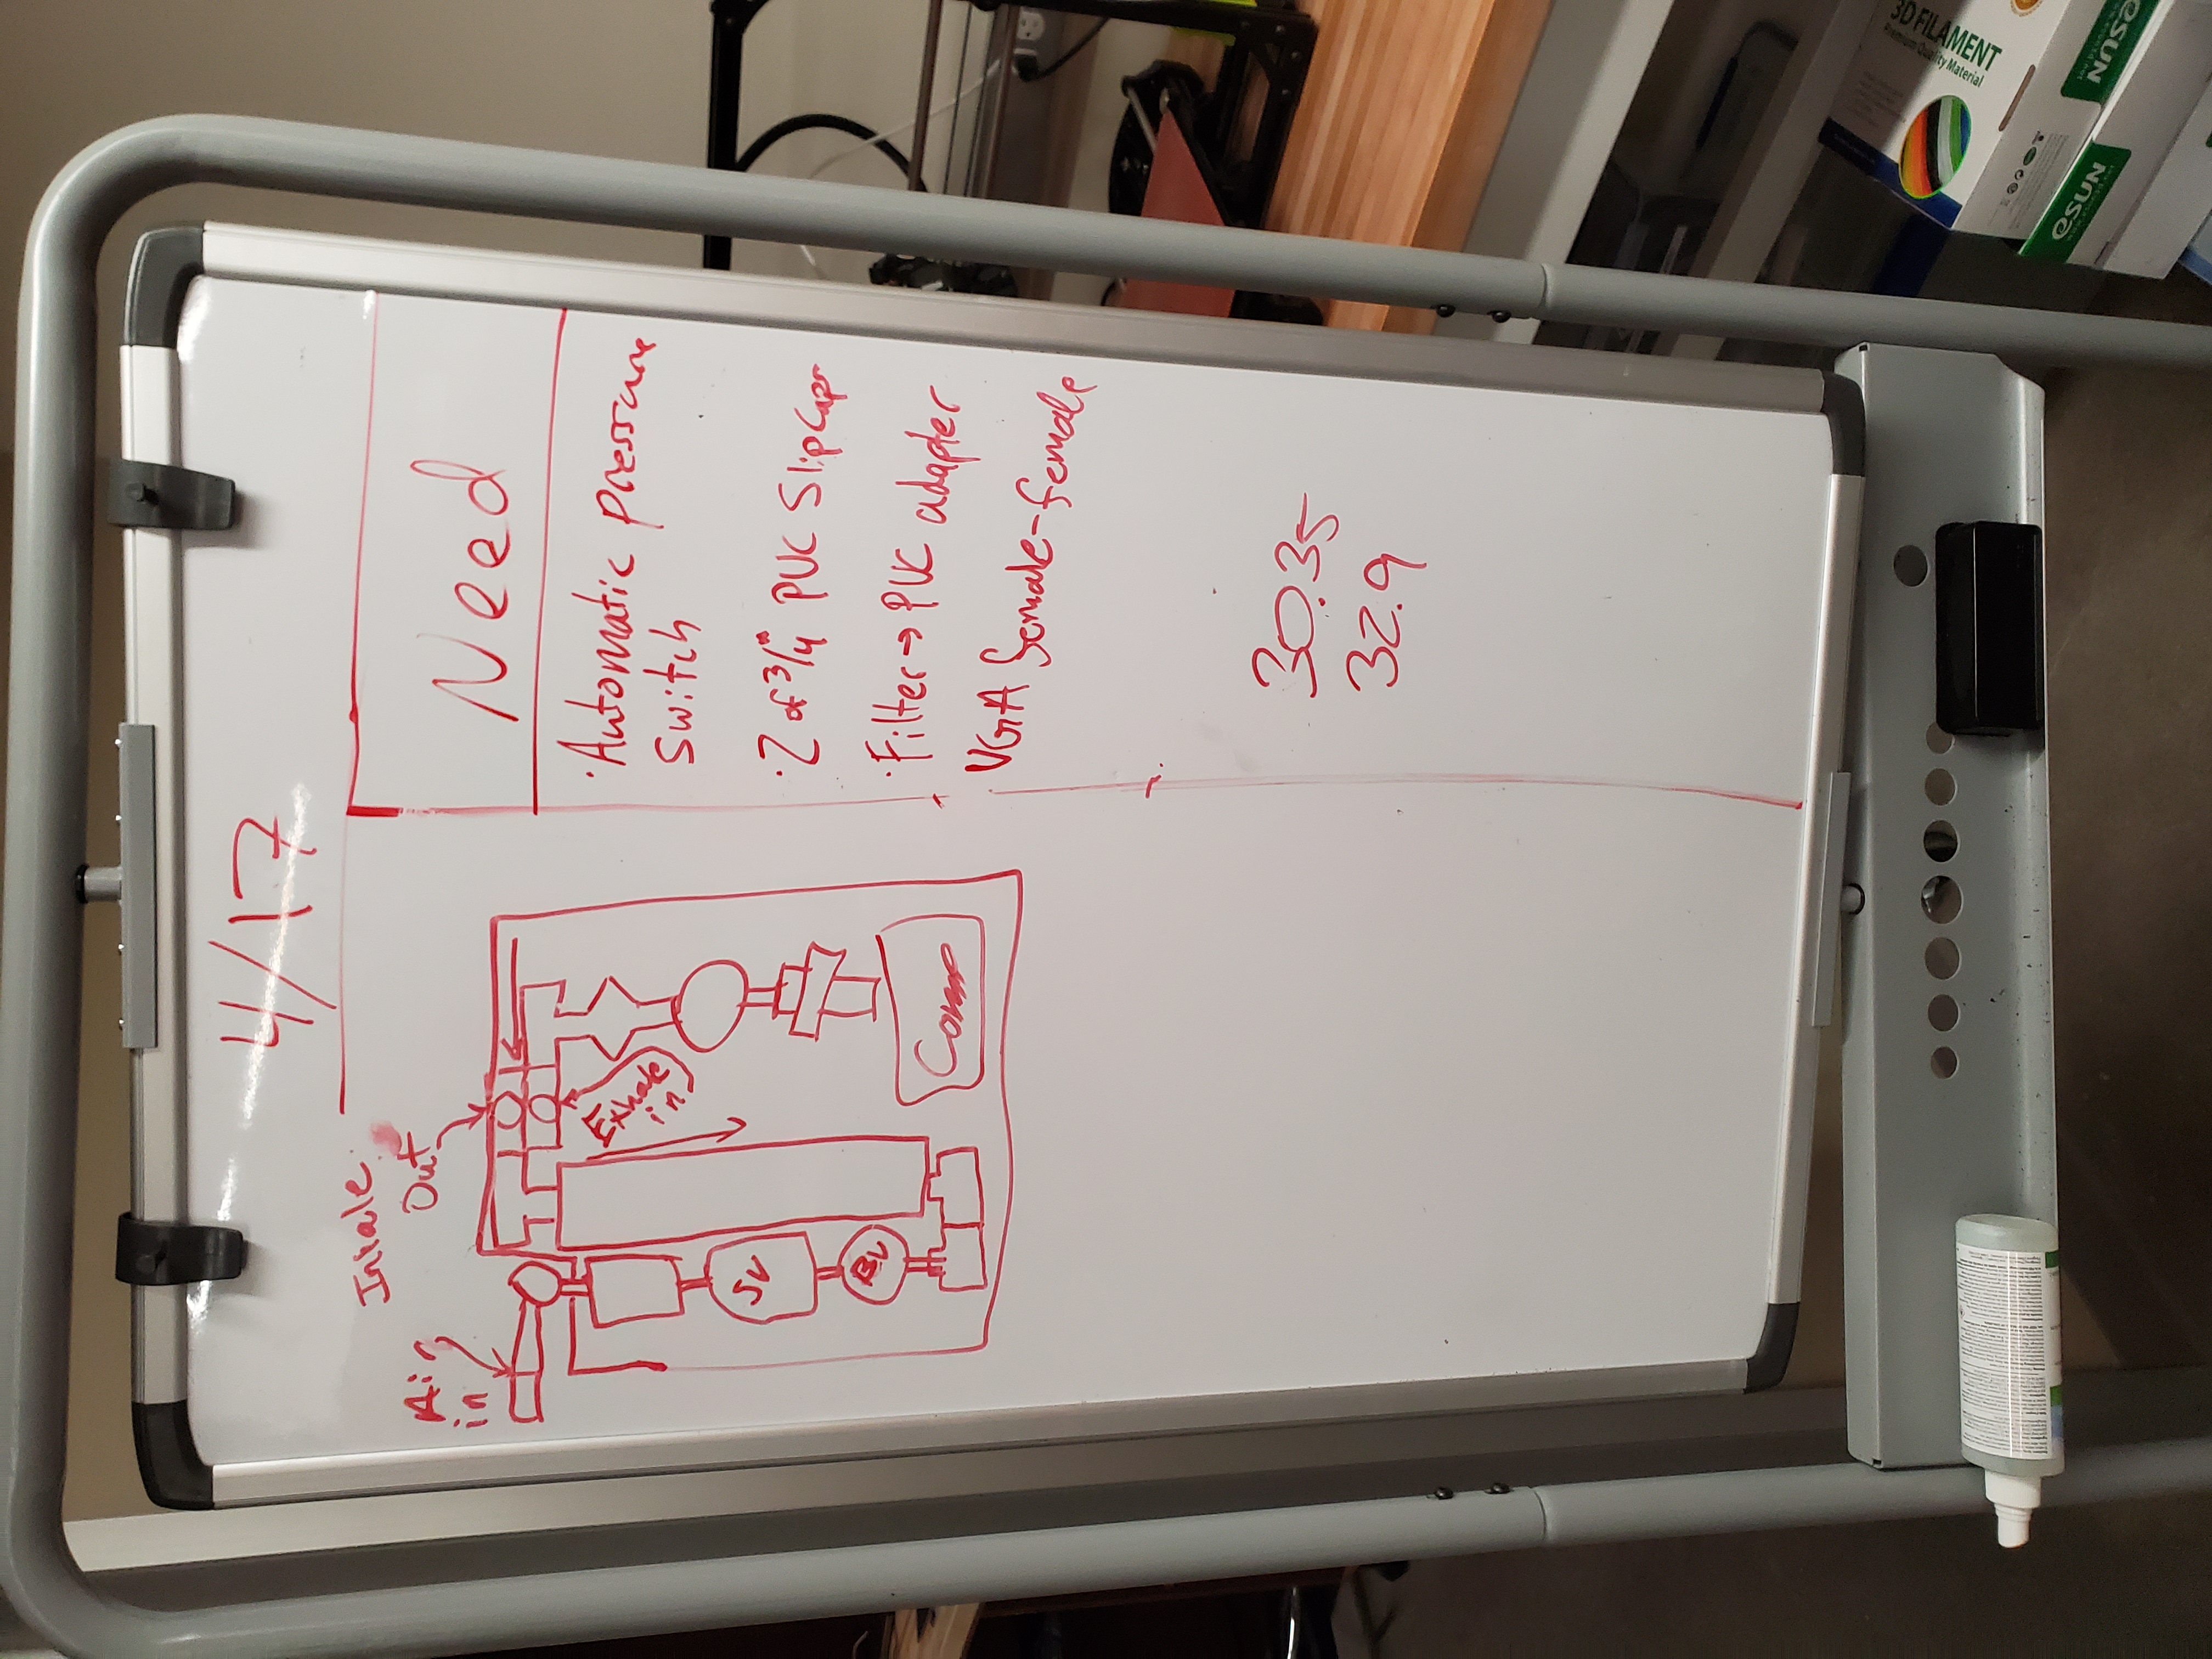 4/17
Inhale
Out
Air
in
Exhale
in
SV
BV
Comp
Need
·Automatic pressure
switch
·2 of 3/4" PVC Slip caps
·Filter→PVC adapter
VGA female-female
30.35
32.9
3D FILAMENT
eSUN
eSUN